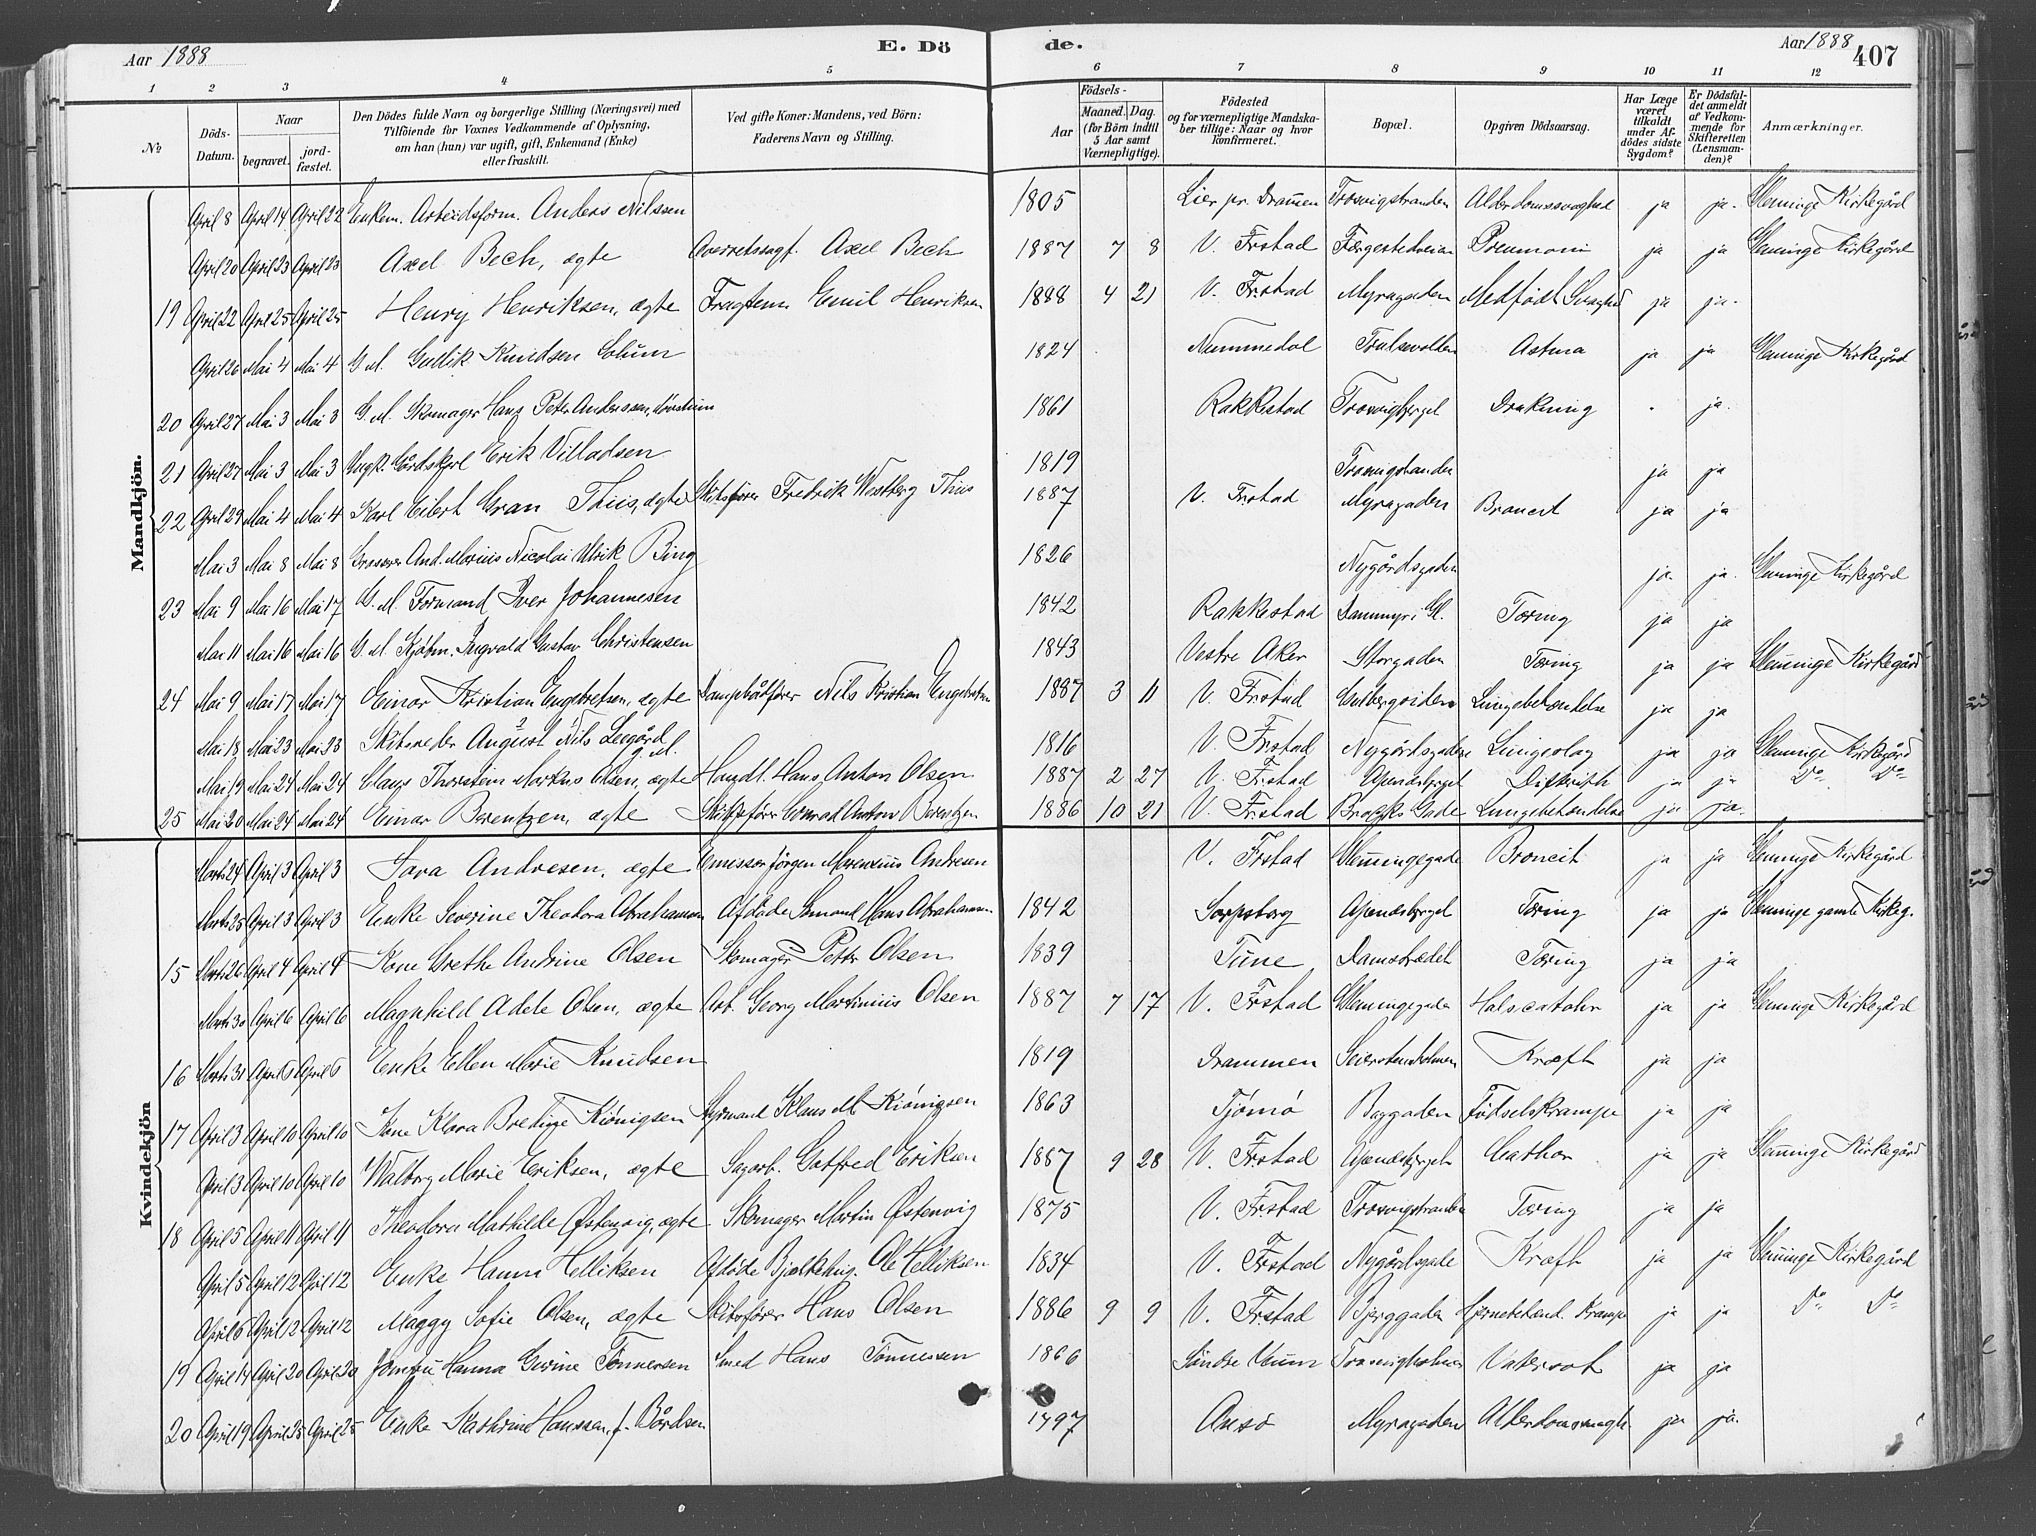 Aar 1888 E. Döde. Aar 1888 407
1 2 3 4 5 6 7 8 9 10 11 12
№ Döds-Datum. Naar begravet. jordfæstet. Den Dödes fulde Navn og borgerlige Stilling (Næringsvei) med Tilföiende for Voxnes Vedkommende af Oplysning, om han (hun) var ugift, gift, Enkemand (Enke) eller fraskilt. Ved gifte Koner: Mandens, ved Börn: Faderens Navn og Stilling. Födsels- Aar Maaned. Dag. (for Börn indtil 5 Aar samt Værnepligtige). Födested og for værnepligtige Mandskaber tillige: Naar og hvor konfirmeret. Bopæl. Opgiven Dödsaarsag. Har Læge været tilkaldt under Afdödes sidste Sygdom? Er Dödsfaldet anmeldt af Vedkommende for Skifteretten (Lensmanden)? Anmærkninger.
Mandkjön.
April 8 April 14 April 22 Enkem. Arbeidsform. Anders Nilssen 1805 Lier pr. Dramen Trosvigstranden Alderdomssvaghed ja ja. Glemminge Kirkegård
April 20 April 23 April 23 Axel Bech, ægte Overretssagf. Axel Bech 1887 7 8 V. Frstad Færgestedveien Pneumoni ja ja Glemminge Kirkegård
19 April 22 April 25 April 25 Henry Henriksen, ægte Fragtem. Emil Henriksen 1888 4 21 V. Frstad Myragaden Medfödt Svaghed ja ja.
April 26 Mai 4 Mai 4 G. M. Gullik Knudsen Solum 1824 Nummedal Astma ja ja Glemminge Kirkegård
20 April 27 Mai 3 Mai 3 G. M. Skomager Hans Peter Anderssen, 1861 Rakkestad Trosvigbjerget Drukning . ja.
21 April 27 Mai 3 Mai 3 Ungk. Gårdskarl Erik Villadsen 1819 Trosvigstranden ja ja
22 April 29 Mai 4 Mai 4 Karl Eilert Gran Thiis, ægte Skibsfører Fredrik Westberg Thiis 1887 V. Frstad Myragaden Broncit ja ja
Mai 3 Mai 8 Mai 8 Grosserer And. Marius Nicolai Ulrik Bing 1826 Nygårdsgaden ja ja. Glemminge Kirkegård
23 Mai 9 Mai 16 Mai 17 G. M. Formand Iver Johannesen 1842 Rakkestad Dammyr i Gl. Tæring ja ja
Mai 11 Mai 16 Mai 16 G. M. Kjøbm. Ingvald Gustav Christensen 1843 Vestre Aker Storgaden Tæring ja ja Glemminge Kirkegård
24 Mai 9 Mai 17 Mai 17 Einar Kristian Engebretsen, ægte Dampbådfører Nils Kristian Engebretsen 1887 3 11 V. Frstad Lungebetændelse ja ja
Mai 18 Mai 23 Mai 23 Skibsreder August Nils Leegård g. M. 1816 V. Frstad Nygårdsgaden Lungeslag ja ja Glemminge Kirkegård
Mai 19 Mai 24 Mai 24 Claus Thorstein Markus Olsen, ægte Handl. Hans Anton Olsen 1887 2 27 V. Frstad Apenæsbjerget Difterith ja ja Do Do
25 Mai 20 Mai 24 Mai 24 Einar Berentzen, ægte Skibsfører Conrad Anton Berentzen 1886 10 21 V. Frstad Brochs Gade Lungebetændelse ja ja.
Kvindekjön
Marts 24 April 3 April 3 Sara Andresen, ægte Emissær Jørgen Marenius Andresen V. Frstad Glemmingegade Broncit ja ja Glemminge Kirkegård
Marts 25 April 3 April 3 Enke Severine Theodora Abrahamsen Afdøde Sømand Hans Abrahamsen 1842 Sarpsborg Apenæsbjerget Tæring ja ja Glemminge gamle Kirkeg.
15 Marts 26 April 4 April 4 Kone Grethe Andrine Olsen Skomager Petter Olsen 1839 Tune Damstrædet Tæring ja ja
Marts 30 April 6 April 6 Maghhild Adele Olsen, ægte Arb. Georg Martinius Olsen 1887 7 17 V. Frstad Glemmingegade Halscatahr ja ja Glemminge Kirkegård
16 Marts 31 April 6 April 6 Enke Ellen Marie Knudsen 1819 Drammen Kræft ja ja
17 April 3 April 10 April 10 Kone Klara Bredine Kiönigsen Styrmand Klaus M. Kiönigsen 1863 Tjømø Baggaden Födselskrampe ja ja
April 3 April 10 April 10 Walborg Marie Eriksen, ægte Sagarb. Gotfred Eriksen 1887 9 28 V. Frstad Apenæsbjerget Cathar ja ja Glemminge Kirkegård
18 April 5 April 11 April 11 Theodora Mathilde Østenvig, ægte Skomager Martin Østenvig 1875 V. Frstad Trosvigstranden Tæring ja ja
April 5 April 12 April 12 Enke Hanna Helliksen Afdøde Ole Helliksen 1834 V. Frstad Nygårdsgade Kræft ja ja Glemminge Kirkegård
April 6 April 12 April 12 Maggy Sofie Olsen, ægte Skibsfører Hans Olsen 1886 9 9 V. Frstad Bjerggaden Hjernebetænd. Krampe ja ja Do Do
19 April 14 April 20 April 20 Jomfru Hanna Gurine Tönnessen Smed Hans Tönnessen 1866 Søndre Trosvigholmen Vatersot ja ja
20 April 19 April 25 April 25 Enke Kathrine Hanssen, f. Bårdsen 1797 Onsø Myragaden ja ja.